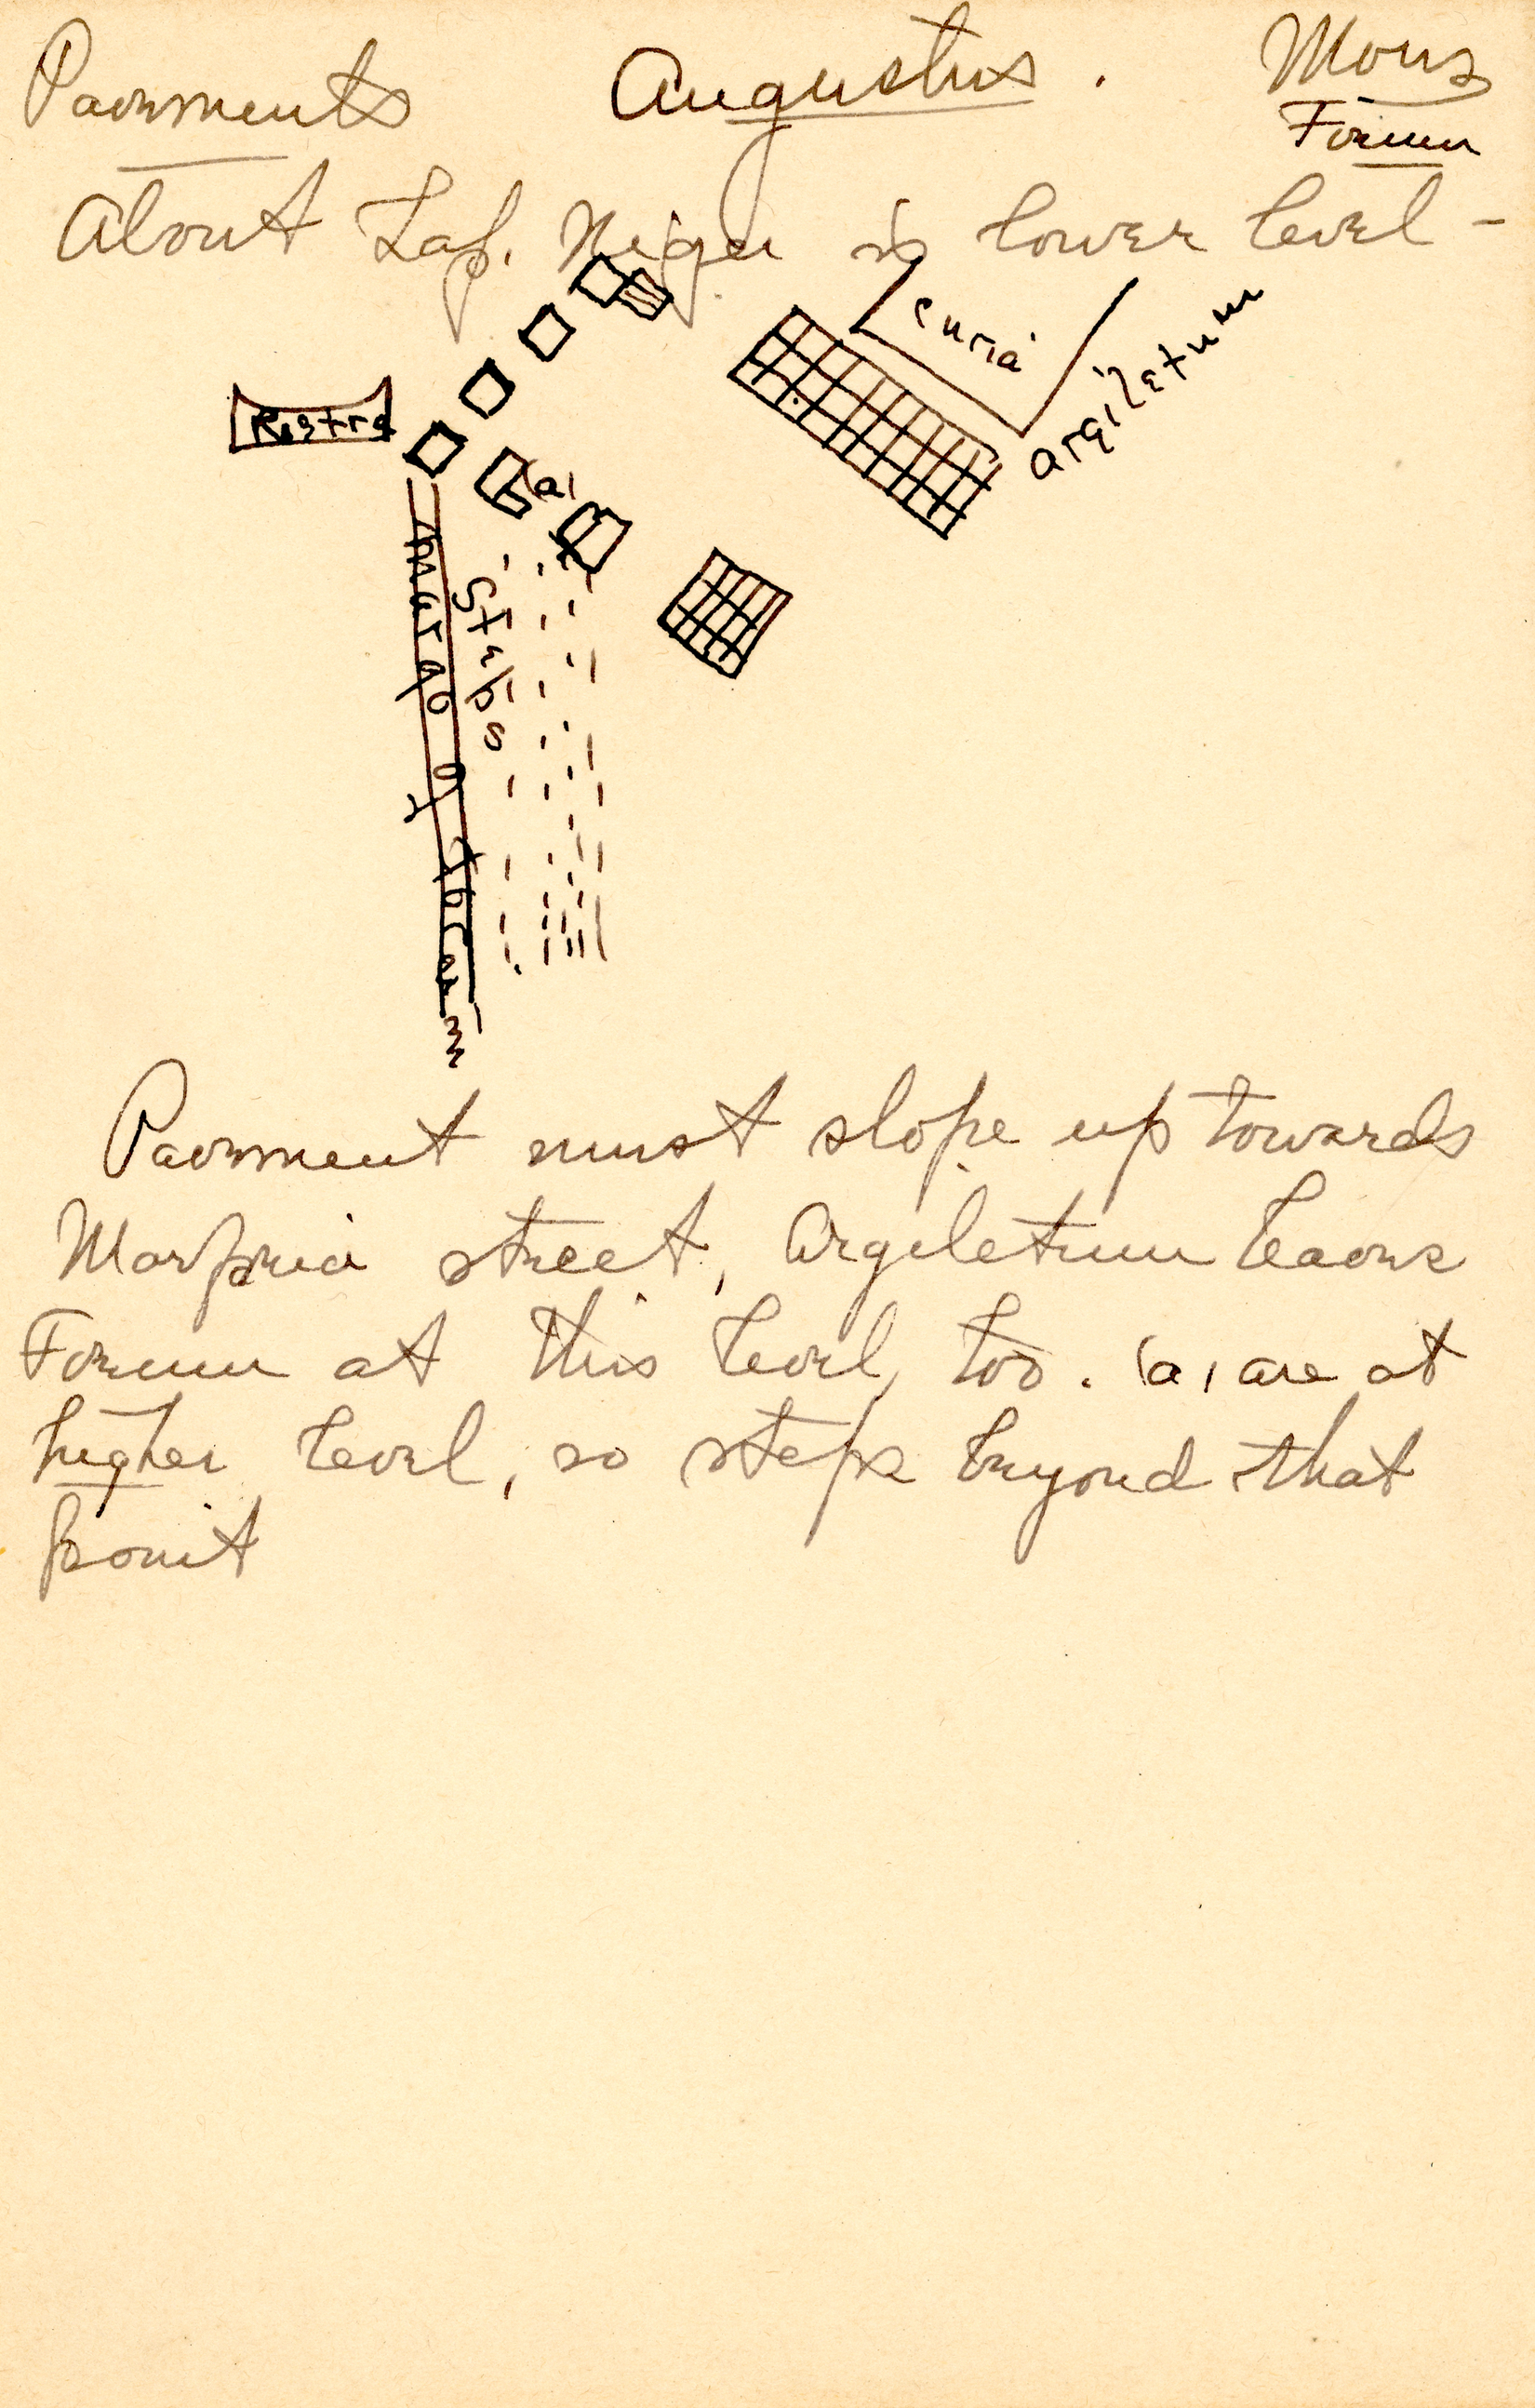 Pavements Augustus. Mons
Forum
About Lap. Niger is lower level -
Curia
Argiletum
Rostra
(a)
margo of
steps
Pavement must slope up towards
street, Argiletum leaves
Forum at this level, too. (a) are at
higher level, so steps beyond that
point